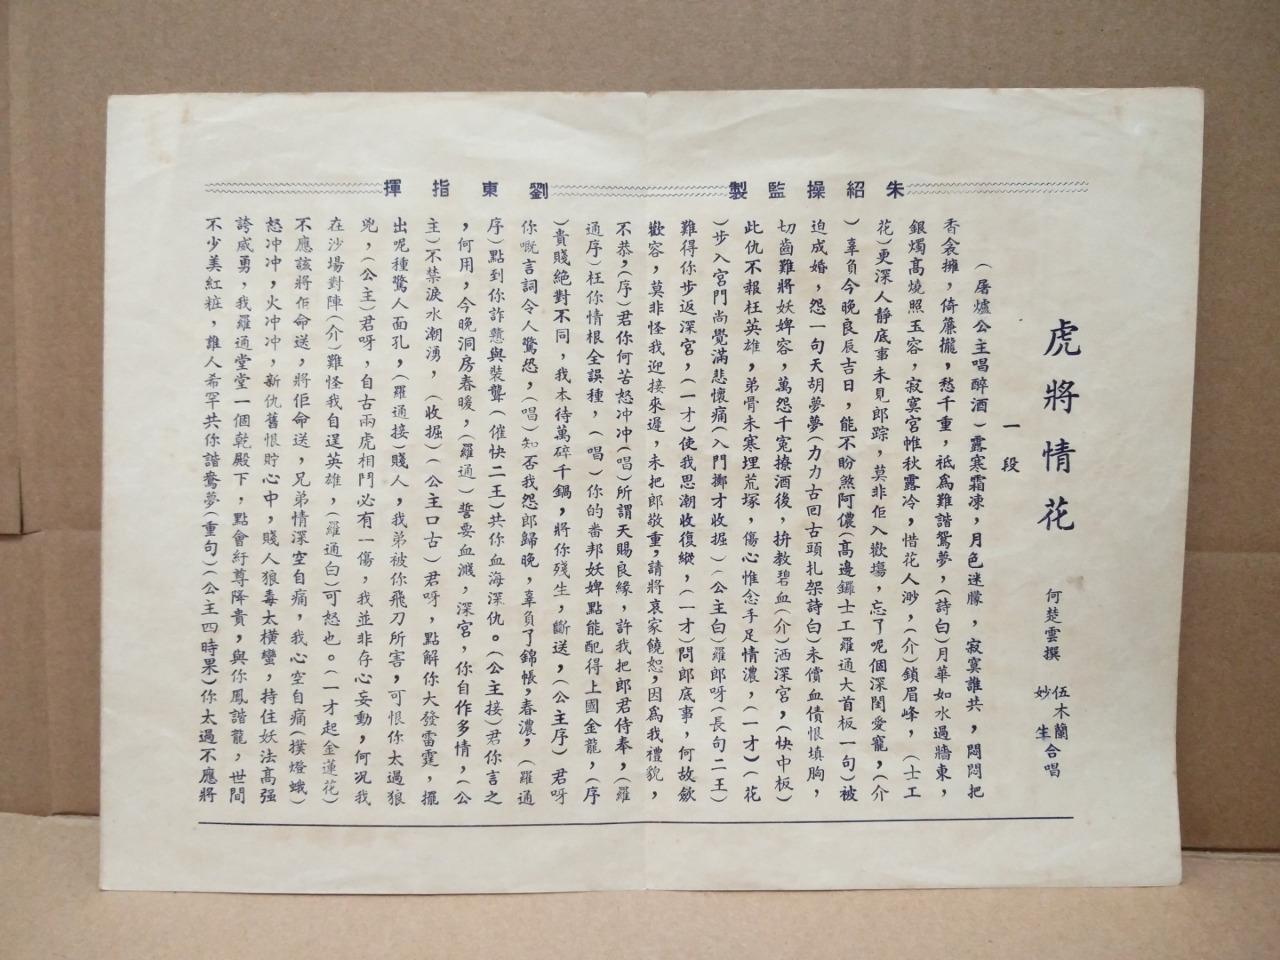 朱紹操監製
劉東指揮
虎將情花
何楚雲撰
伍木蘭
妙生合唱
一段
（屠爐公主唱醉酒）露寒霜凍，月色迷朦，寂寞誰共，悶悶把
香衾擁，倚簾攏，愁千重，祗為難諧鴛夢，（詩白）月華如水過牆東，
銀燭高燒照玉容，寂寞宮帷秋露冷，惜花人渺，（介）鎖眉峰，（士工
花）更深人靜底事未見郎踪，莫非佢入歡塲，忘了呢個深閨愛寵，（介
）辜負今晚良辰吉日，能不盼煞阿儂（高邊鑼士工羅通大首板一句）被
迫成婚，怨一句天胡夢夢（力力古回古頭扎架詩白）未償血債恨填胸，
切齒難將妖婢容，萬怨千寃撩酒後，拚教碧血（介）洒深宮，（快中板）
此仇不報枉英雄，弟骨未寒埋荒塚，傷心惟念手足情濃，（一才）（花
）步入宮門尚覺滿悲懷痛（入門擲才收掘）（公主白）羅郎呀（長句二王）
難得你步返深宮，（一才）使我思潮收復縱，（一才）問郎底事，何故歛
歡容，莫非怪我迎接來遲，未把郎敬重，請將哀家饒恕，因為我禮貌，
不恭，（序）君你何苦怒冲冲（唱）所謂天賜良緣，許我把郎君侍奉，（羅
通序）枉你情根全誤種，（唱）你的番邦妖婢點能配得上國金龍，（序
）貴賤絕對不同，我本待萬碎千鍋，將你殘生，斷送，（公主序）君呀
你嘅言詞令人驚恐，（唱）知否我怨郎歸晚，辜負了錦帳，春濃，（羅通
序）點到你詐戇與裝聾（催快二王）共你血海深仇。（公主接）君你言之
，何用，今晚洞房春暖，（羅通）誓要血濺，深宮，你自作多情，（公
主）不禁淚水潮湧，（收掘）（公主口古）君呀，點解你大發雷霆，擺
出呢種驚人面孔，（羅通接）賤人，我弟被你飛刀所害，可恨你太過狼
兇，（公主）君呀，自古兩虎相鬥必有一傷，我並非存心妄動，何况我
在沙場對陣（介）難怪我自逞英雄，（羅通白）可怒也。（一才起金蓮花）
不應該將佢命送，將佢命送，兄弟情深空自痛，我心空自痛（撲燈蛾）
怒冲冲，火冲冲，新仇舊恨貯心中，賤人狼毒太橫蠻，持住妖法高强
誇威勇，我羅通堂堂一個乾殿下，點會紆尊降貴，與你鳳諧龍，世間
不少美紅粧，誰人希罕共你諧鴦夢（重句）（公主四時果）你太過不應將